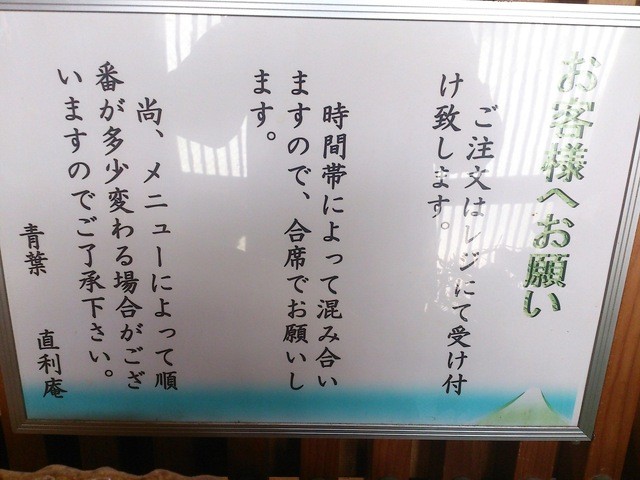 お客様へお願い
ご注文はレジにて受け付
け致します。
時間帯によって混み合い
ますので、合席でお願いし
ます。
尚、メニューによって順
番が多少変わる場合がござ
いますのでご了承下さい。
青葉 直利庵